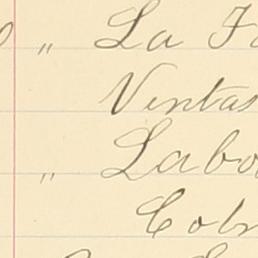 " La
Ventas
" Labo
Cobr